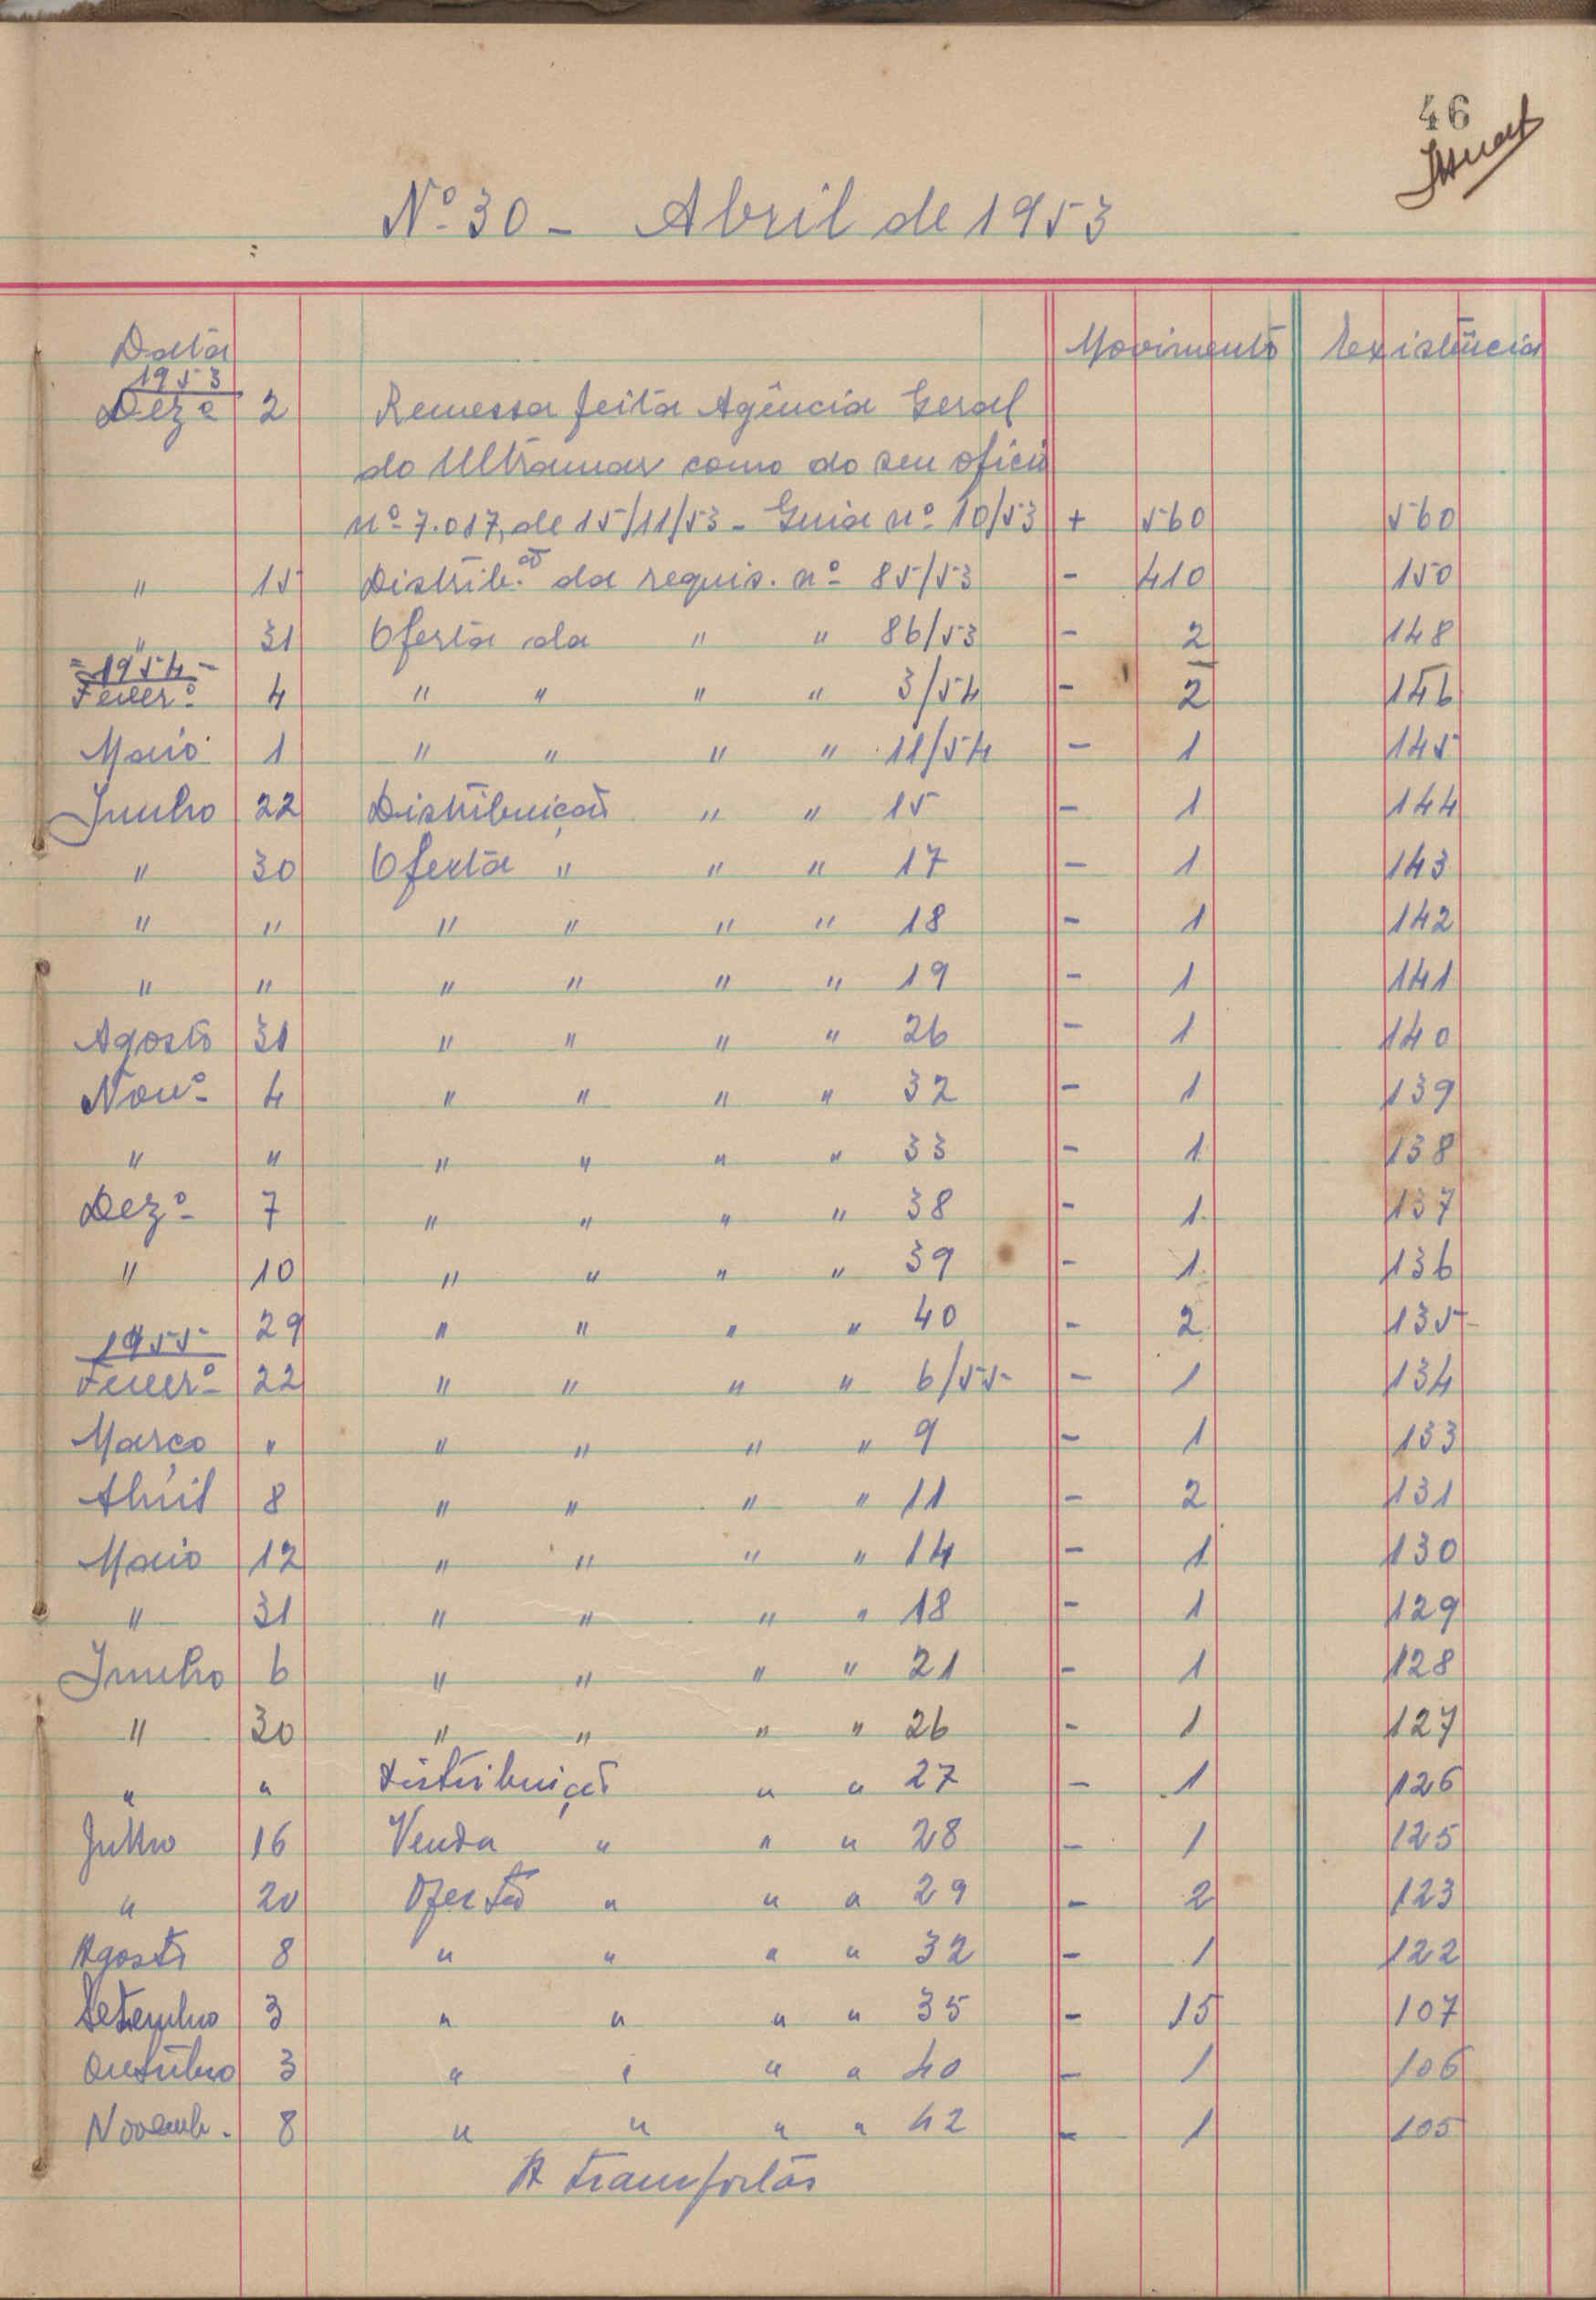 46
Nº 30 - Abril de 1953
Data Movimento Existência
1953
Dezº 2 Remessa feita Agência Geral
do Ultramar como do seu ofício
nº 7.017, de 15/11/53 - Guia nº 10/53 + 560 560
" 15 Distrib.ão da requis. nº 85/53 - 410 150
" 31 Oferta da " " 86/53 - 2 148
= 1954 -
Feverº 4 " " " " 3/54 - 2 146
Maio 1 " " " " 11/54 - 1 145
Junho 22 Distribuição " " 15 - 1 144
" 30 Oferta " " " 17 - 1 143
" " " " " " 18 - 1 142
" " " " " " 19 - 1 141
Agosto 31 " " " " 26 - 1 140
Novº 4 " " " " 32 - 1 139
" " " " " " 33 - 1 138
Dezº 7 " " " " 38 - 1 137
" 10 " " " " 39 - 1 136
" 29 " " " " 40 - 2 135
1955
Feverº 22 " " " " 6/55 - 1 134
Março " " " " " 9 - 1 133
Abril 8 " " " " 11 - 2 131
Maio 12 " " " " 14 - 1 130
" 31 " " " " 18 - 1 129
Junho 6 " " " " 21 - 1 128
" 30 " " " " 26 - 1 127
" " Distribuição " " 27 - 1 126
Julho 16 Venda " " " 28 - 1 125
" 20 Oferta " " " 29 - 2 123
Agosto 8 " " " " 32 - 1 122
Setembro 3 " " " " 35 - 15 107
Outubro 3 " " " " 40 - 1 106
Novemb. 8 " " " " 42 - 1 105
A transportar